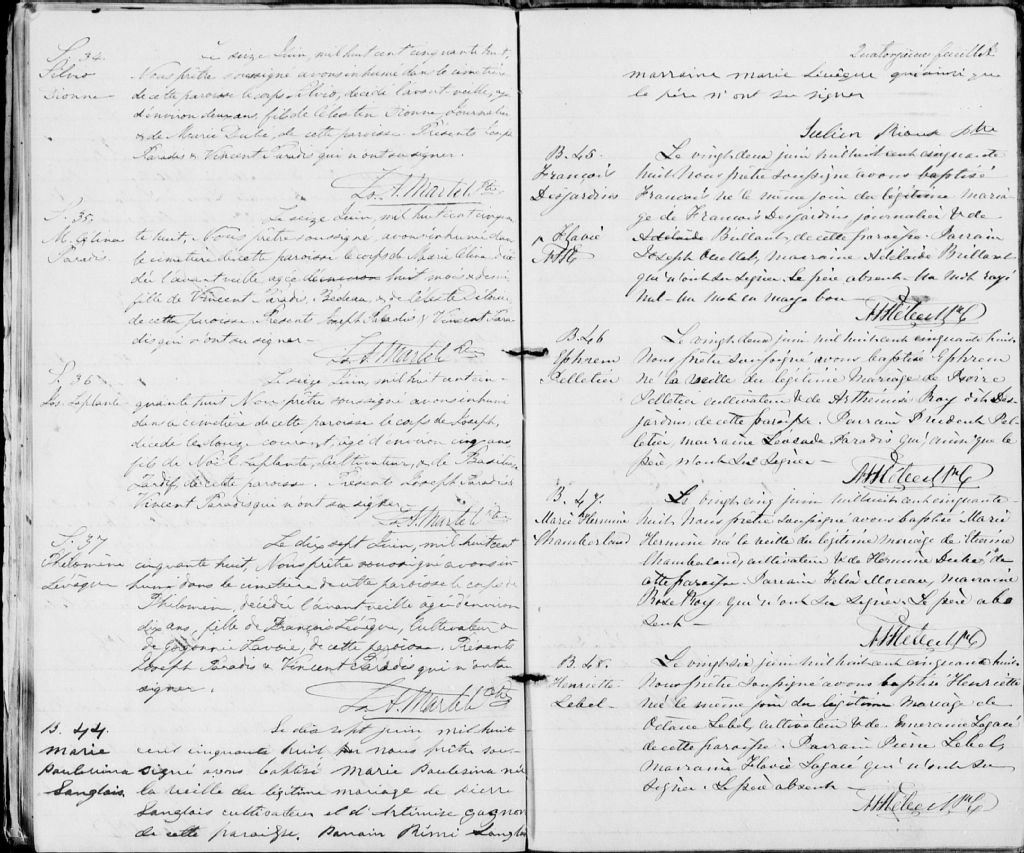 S. 34.
Silvio
Dionne
Le seize Juin, mil huit cent cinquante huit,
Nous prêtre soussigné avons inhumé dans le cimetière
de cette paroisse le corps Silvio, décédé l'avant veille, agé
d'environ deux ans, fils de Célestin Dionne, Journalier
& de Marie Dubé, de cette paroisse. Présents Joseph
Paradis & Vincent Paradis qui n'ont su signer.
Ls A. Martel Ptre
S. 35.
M. Célina
Paradis.
Le seize Juin, mil huit cent cinquan
te huit, Nous prêtre soussigné, avons inhumé dans
le cimetière de cette paroisse le corps de Marie Célina, décé
dée l'avant veille, agée huit mois & demi
fille de Vincent Paradis, Bedeau, & de Céleste
de cette paroisse. Présents Joseph Paradis & Vincent Para
dis qui n'ont su signer -
Ls A. Martel Ptre
S. 36
Jos. Laplante
Le seize Juin, mil huit cent cin-
quante huit Nous prêtre soussigné avons inhumé
dans le cimetière de cette paroisse le corps de Joseph,
décédé le courant, agé d'environ cinq ans,
fils de Noël Laplante, Cultivateur, & de
Tardif de cette paroisse. Présents Joseph Paradis &
Vincent Paradis qui n'ont su signer
Ls A. Martel Ptre
S. 37
Philomène
Lévêque
Le dix sept Juin, mil huit cent
cinquante huit, Nous prêtre soussigné avons in-
humé dans le cimetière de cette paroisse le corps
Philomène, décédée l'avant veille agée d'environ
dix ans, fille de François Lévêque, Cultivateur &
de Lavoie, de cette paroisse. Présents
Joseph Paradis & Vincent Paradis qui n'ont su
signer.
Ls A. Martel Ptre
B. 44.
Marie
Paulesina
Langlais
Le dix sept juin mil huit
cent cinquante huit nous prêtre sous-
signé avons baptisé Marie Paulesina née
la veille du légitime mariage de Pierre
Langlais cultivateur et d'Artémise Gagnon
de cette paroisse. Parrain Rémi Langlais
Quatorzième feuillet
marraine Marie Lévêque qui ainsi que
le père n'ont su signer
Julien Rioux ptre
B. 45.
François
Desjardins
Le vingt deux juin mil huit cent cinquante
huit Nous prêtre soussigné avons baptisé
François né le même jour du légitime maria-
ge de François Desjardins journalier & de
Adélaide Brillant, de cette paroisse. Parrain
Joseph Ouellet, marraine Adélaide Brillant
qui n'ont su signer. Le père absent. Un mot rayé
nul - Un mot en marge bon -
^ Flavie
B. 46
Ephrem
Pelletier
Le vingt deux juin mil huit cent cinquante huit
Nous prêtre soussigné avons baptisé Ephrem
né la veille du légitime Mariage de
Pelletier cultivateur & de Arthemise Roy dit Des-
jardins de cette paroisse. Parrain Prudent Pel-
letier, marraine Paradis qui ainsi que le
père, n'ont su signer -
B. 47.
Marie Hermine
Chamberland
Le vingt cinq juin mil huit cent cinquante-
huit, Nous prêtre soussigné avons baptisé Marie
Hermine née la veille du légitime mariage de Etienne
Chamberland, cultivateur & de Hermine Dubé, de
cette paroisse. Parrain Félix Moreau, Marraine
Rose Roy, qui n'ont su signer. Le père ab
sent -
B. 48.
Henriette
Lebel.
Le vingt six juin mil huit cent cinquante huit
Nous prêtre soussigné avons baptisé Henriette
née le même jour du légitime Mariage de
Octave Lebel, cultivateur & de Emerance Lagacé
de cette paroisse. Parrain Pierre Lebel,
Marraine Flavie Lagacé qui n'ont su
signer. Le père absent -